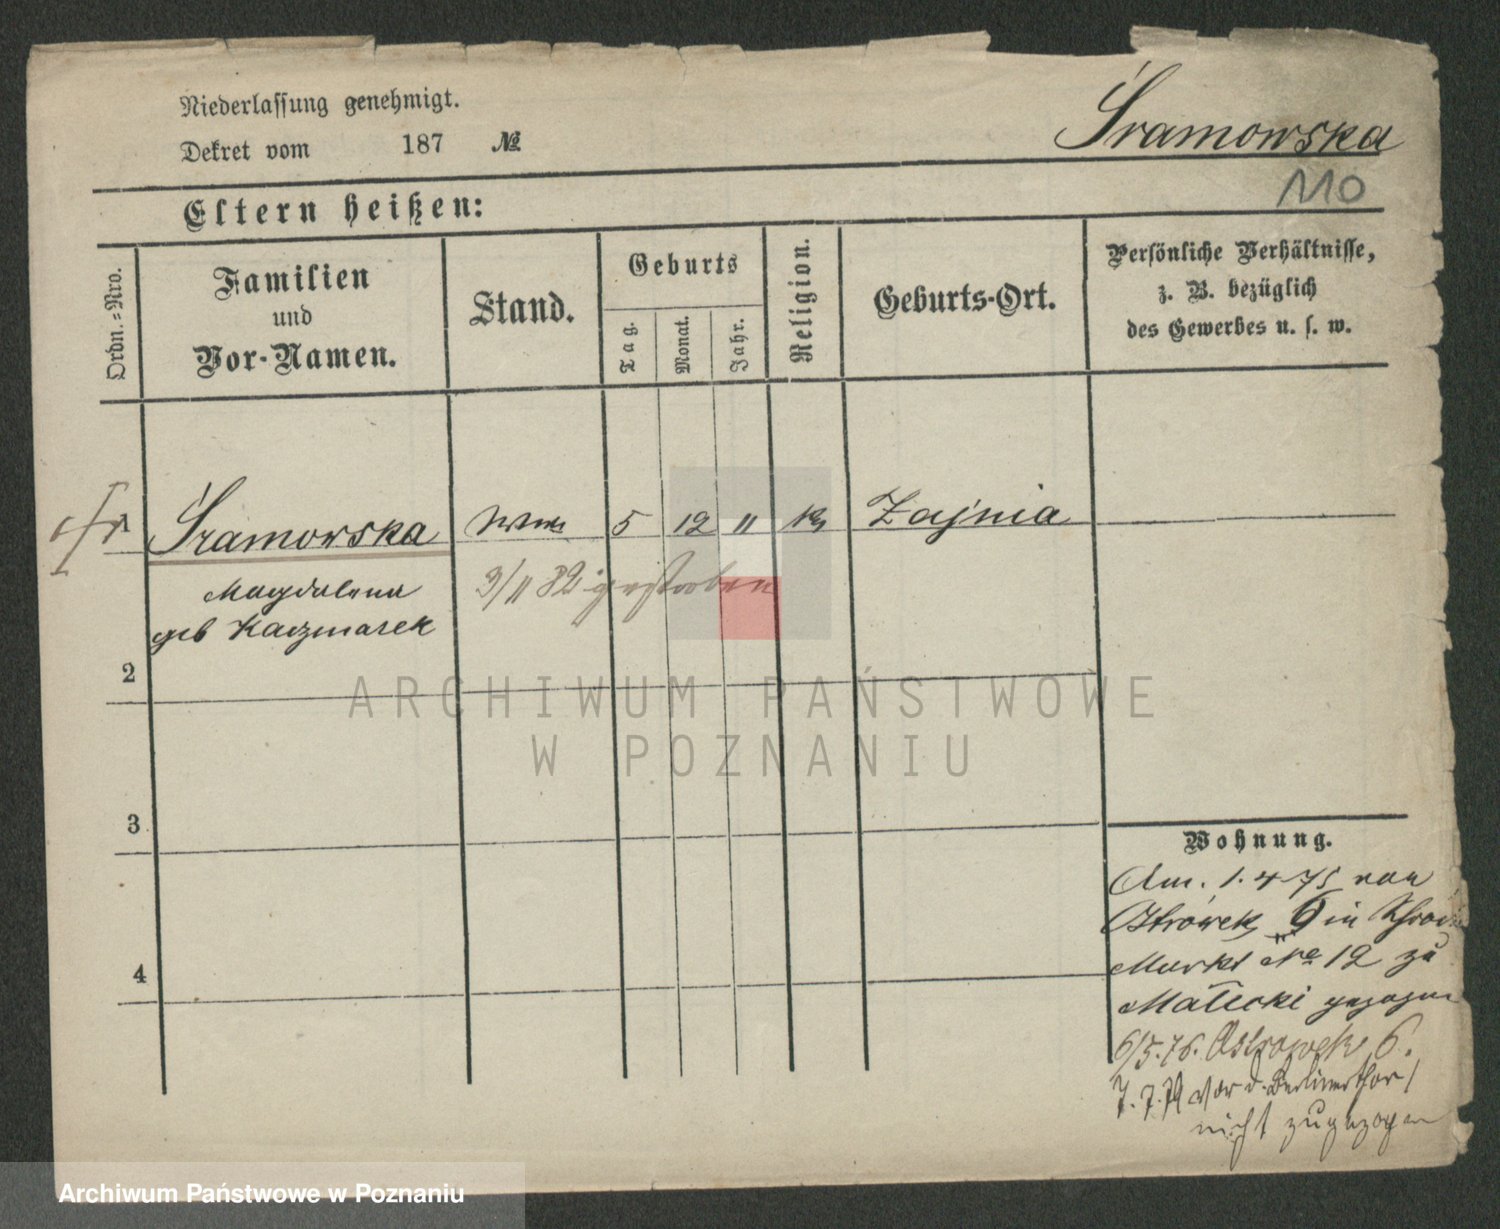 Niederlassung genehmigt.
Dekret vom 187 №
Śramowska
110
Eltern heißen:
Ordn.-Nro.
Familien
und
Vor-Namen.
Stand.
Geburts
Tag.
Monat.
Jahr.
Religion.
Geburts-Ort.
Persönliche Verhältnisse,
z. B. bezüglich
des Gewerbes u. s. w.
1 Śramowska 5 12 11 Zajnia
Magdalena
geb Kaczmarek
3/11 82 gestorben
2
3
4
ARCHIWUM PAŃSTWOWE
W POZNANIU
Wohnung.
Am. 1. 4 75 von
Ostrówek 6 in
Markt No 12 zu
Małecki gezogen
6/5.76. Ostrowek 6.
7.7.79 Vor d. Berlinerthor 1
nicht zugezogen
Archiwum Państwowe w Poznaniu